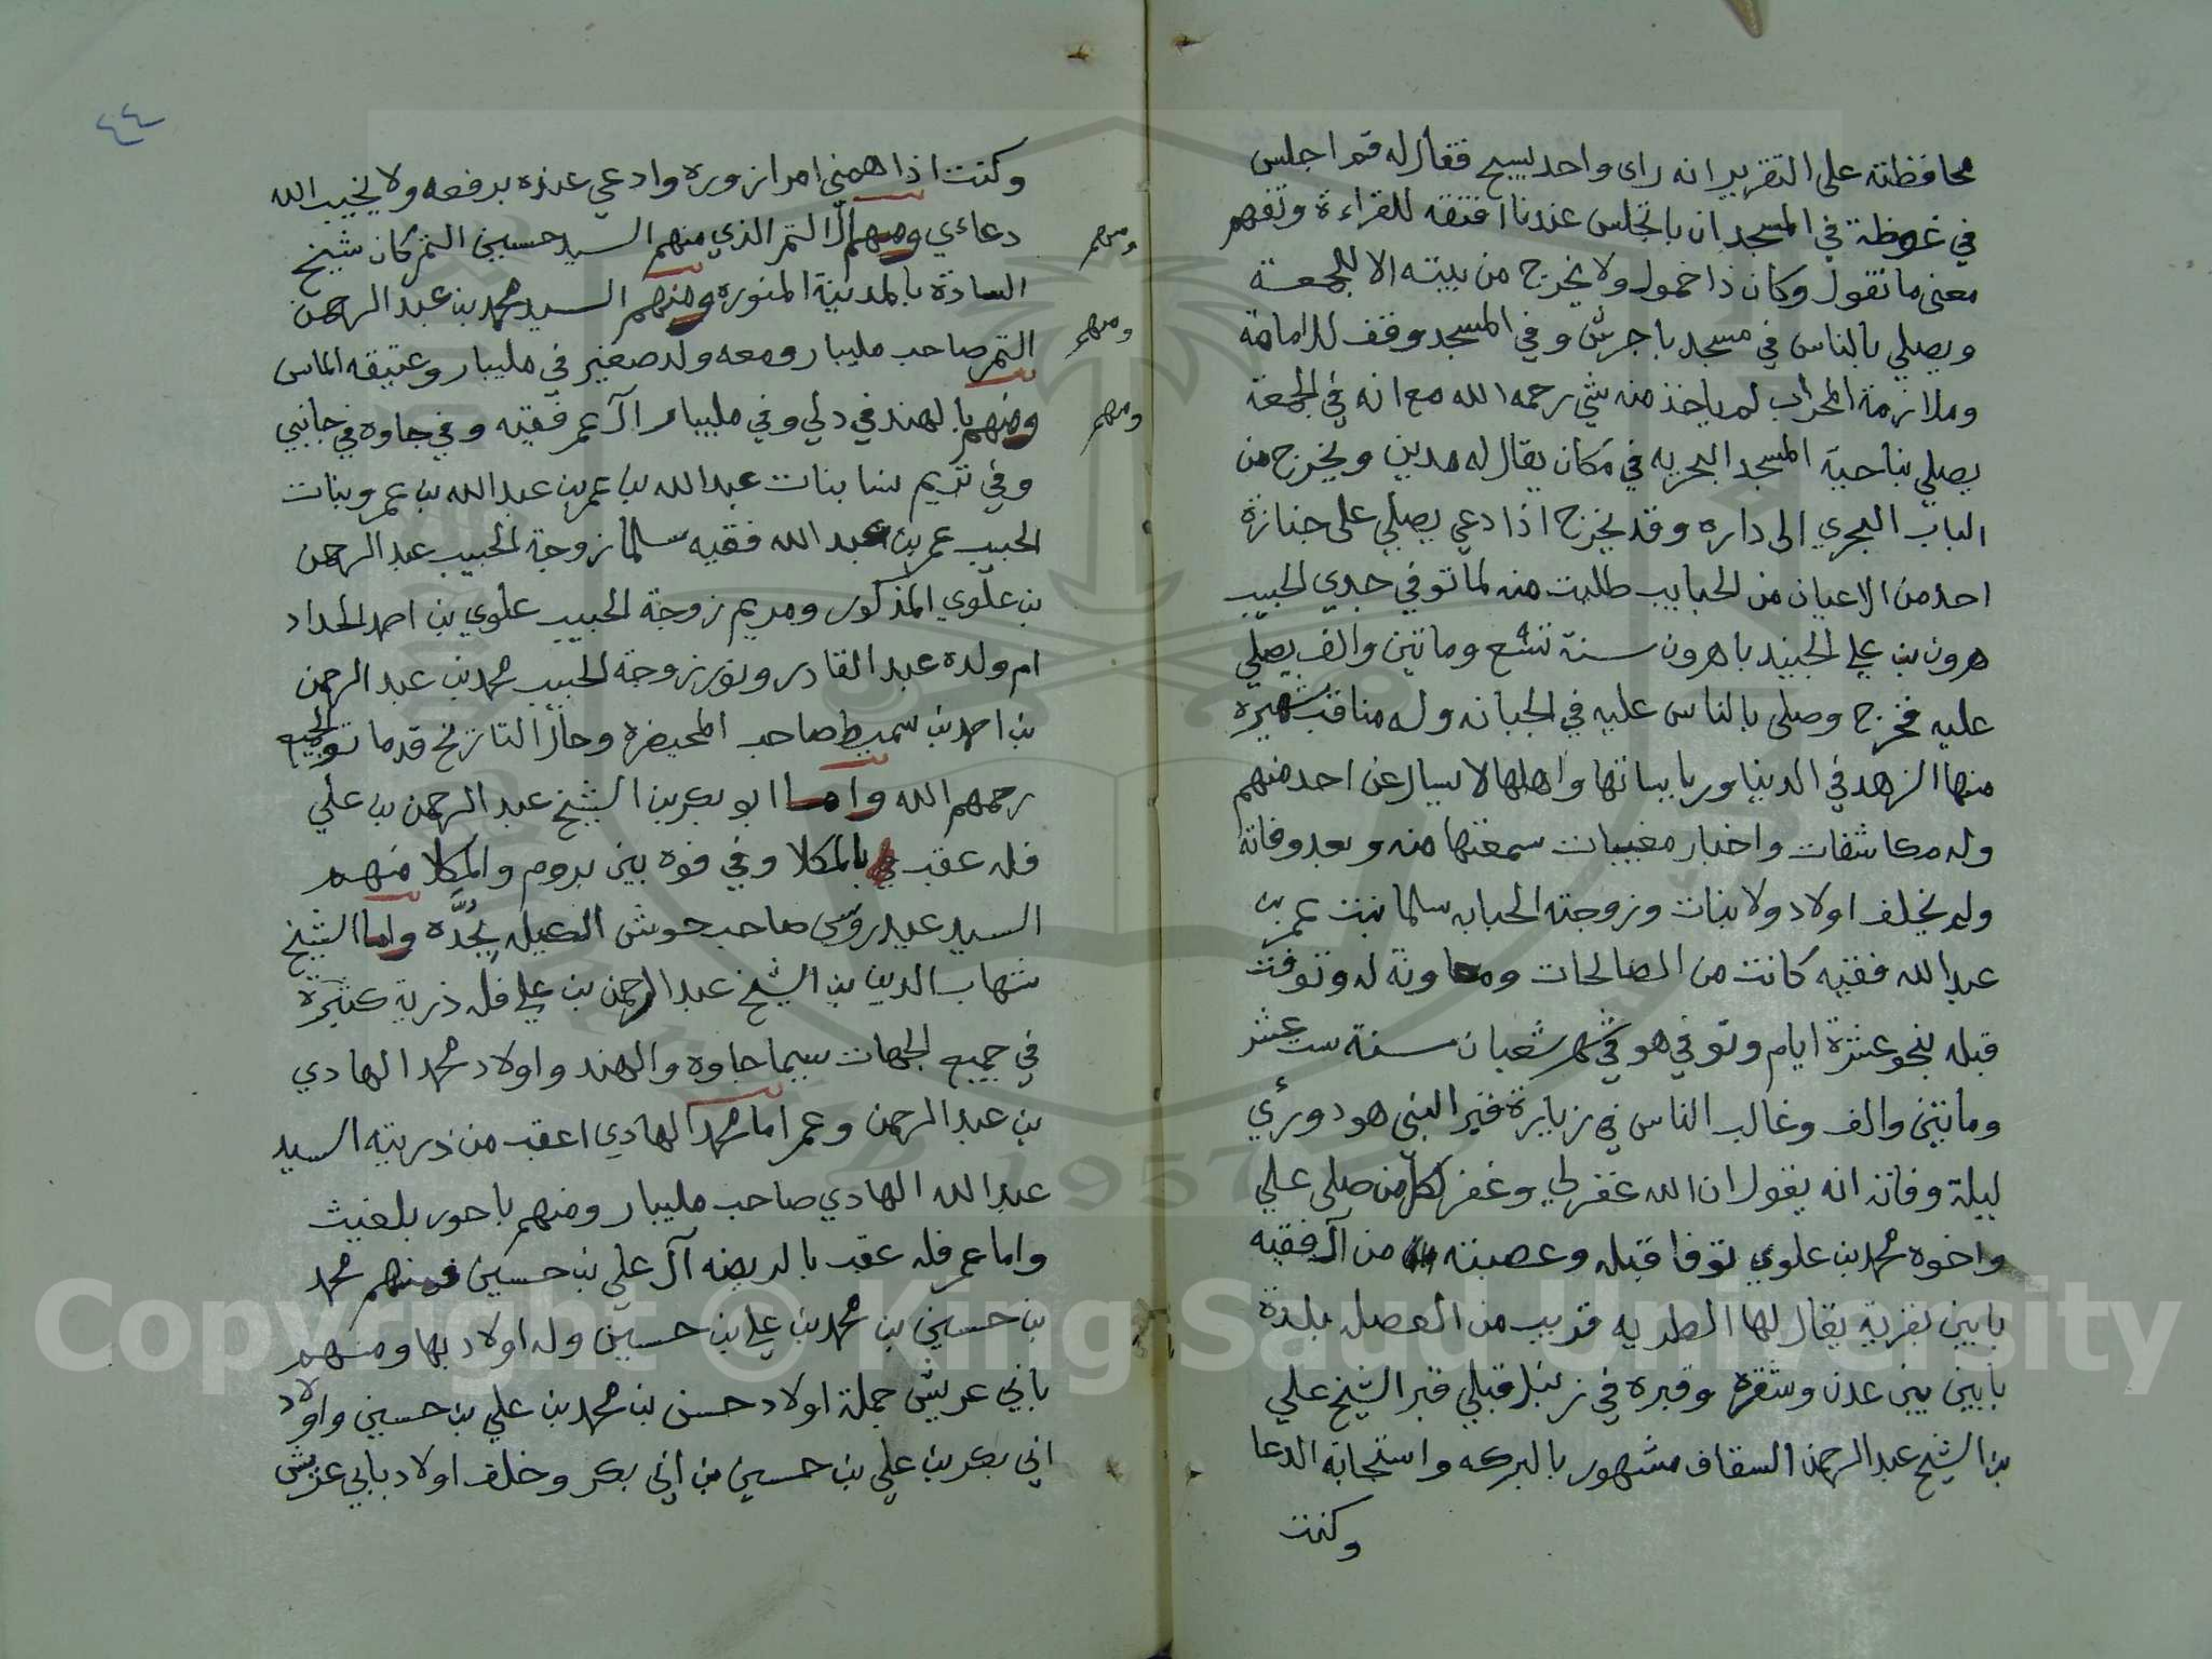 محافظته على التقرير انه راى واحد يسبح فقال له قم اجلس
في غوظة في المسجد ان باتجلس عندنا افتقه للقراءة وتفهم
معنى ما تقول وكان ذا خمول ولا يخرج من بيته الا للجمعة
ويصلي بالناس في مسجد باجرش وفي المسجد وقف للامامة
وملازمة المحراب لم ياخذ منه شي رحمه الله مع انه في الجمعة
يصلي بناحية المسجد البحريه في مكان يقال له مدين ويخرج من
الباب البحري الى داره وقد يخرج اذا دعي يصلي على جنازة
احد من الاعيان من الحبايب طلبت منه لما توفي جدي الحبيب
هرون بن علي الجنيد باهرون سنة تسع وماتين والف يصلي
عليه فخرج وصلى بالناس عليه في الجبانه وله مناقب شهيرة
منها الزهد في الدنيا وربابياتها واهلها لا يسال عن احد منهم
وله مكاشفات واخبار مغيبات سمعتها منه وبعد وفاته
ولم يخلف اولاد ولا بنات وزوجته الحبابه سلما بنت عمر بن
عبد الله فقيه كانت من الصالحات ومعاونة له وتوفت
قبله بنحو عشرة ايام وتوفي هو في شهر شعبان سنة ست عشر
وماتين والف وغالب الناس في زيارة قبر النبي هود ورؤي
ليلة وفاته انه يقول ان الله غفر لي وغفر لكل من صلى علي
واخوه محمد بن علوي توفا قبله وعصبته من آل فقيه
بابين بقرية يقال لها الطريه قريب من العصله بلدة
بابين بين عدن وشقره وقبره في زنبل قبلي قبر الشيخ علي
بن الشيخ عبد الرحمن السقاف مشهور بالبركه واستجابة الدعا
وكنت
٤٤
وكنت اذا همني امر ازوره وادعي عنده برفعه ولا يخيب الله
دعائي ومنهم آل النمر الذي منهم السيد حسين النمر كان شيخ
السادة بالمدينة المنوره ومنهم السيد محمد بن عبد الرحمن
النمر صاحب مليبار ومعه ولد صغير في مليبار وعتيقه الماس
ومنهم بالهند في دلي وفي مليبار آل عمر فقيه وفي جاوه في جانبي
وفي تريم نسا بنات عبد الله بن عمر بن عبد الله بن عمر وبنات
الحبيب عمر بن عبد الله فقيه سلما زوجة الحبيب عبد الرحمن
بن علوي المذكور ومريم زوجة الحبيب علوي بن احمد الحداد
ام ولده عبد القادر ونور زوجة الحبيب محمد بن عبد الرحمن
بن احمد بن سميط صاحب المحيضره وحال التاريخ قد ماتو الجميع
رحمهم الله واما ابو بكر بن الشيخ عبد الرحمن بن علي
فله عقب بالمكلا وفي فوه بين بروم والمكلا منهم
السيد عيدروس صاحب حوش العيله بجُدَّه واما الشيخ
شهاب الدين بن الشيخ عبد الرحمن بن علي فله ذرية كثيرة
في جميع الجهات سيما جاوه والهند واولاد محمد الهادي
بن عبد الرحمن وعمر اما محمد الهادي اعقب من ذريته السيد
عبد الله الهادي صاحب مليبار ومنهم باحور بلغيث
واما عمر فله عقب بالريضه آل علي بن حسين فمنهم محمد
بن حسين بن محمد بن علي بن حسين وله اولاد بها ومنهم
بابي عريش جملة اولاد حسن بن محمد بن علي بن حسين واولاد
ابي بكر بن علي بن حسين بن ابي بكر وخلف اولاد بابي عريش
ومنهم
ومنهم
ومنهم
Copyright © King Saud University
1957